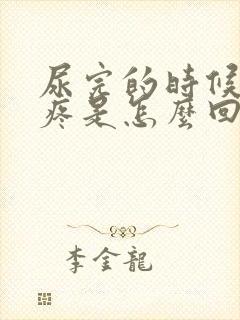 尿完的時候
疼是怎麼回
李金龍